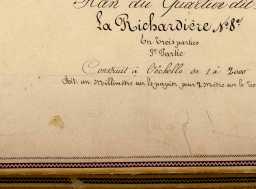 Plan du Quartier dit
La Richardière N° 8
En Trois parties
Partie
Construit à l'échelle de 1 à 2000
Soit un Millimètre sur le papier, pour 2 Mètres sur le